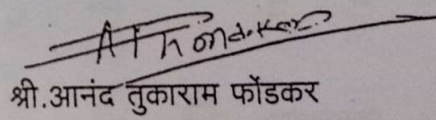 श्री.आनंद तुकाराम फोंडकर